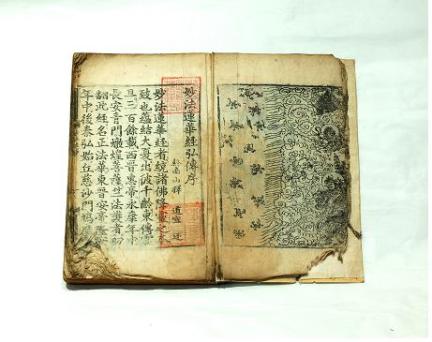 妙法蓮華經弘傳序
終南山釋 道宣 述
妙法蓮華經者統諸佛降靈之本
致也蘊結大夏出彼千齡東傳震
旦三百餘載西晉惠帝永康年中
長安青門燉煌菩薩竺法護者初
翻此經名正法華東晉安帝隆安
年中後秦弘始丘慈沙門鳩摩